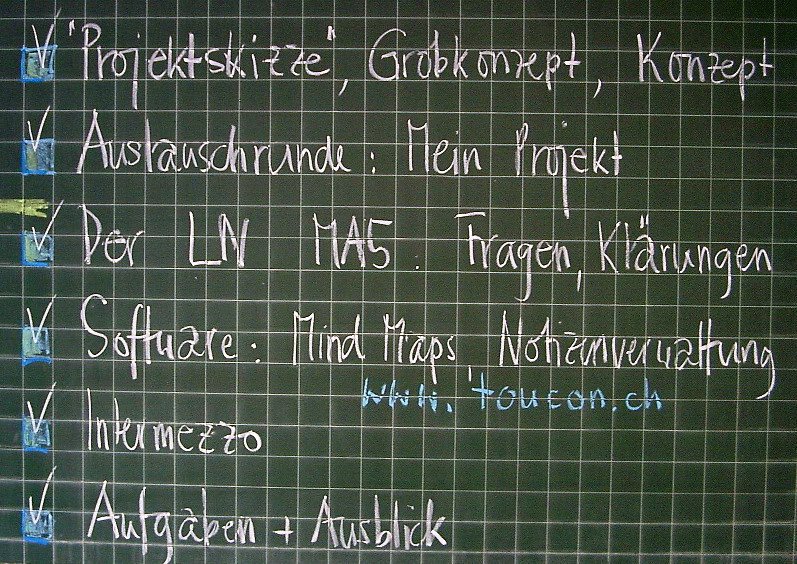 "Projektskizze", Grobkonzept, Konzept
Austauschrunde: Mein Projekt
Der LN MA5: Fragen, Klärungen
Software: Mind Maps, Notizenverwaltung
www.toucon.ch
Intermezzo
Aufgaben + Ausblick